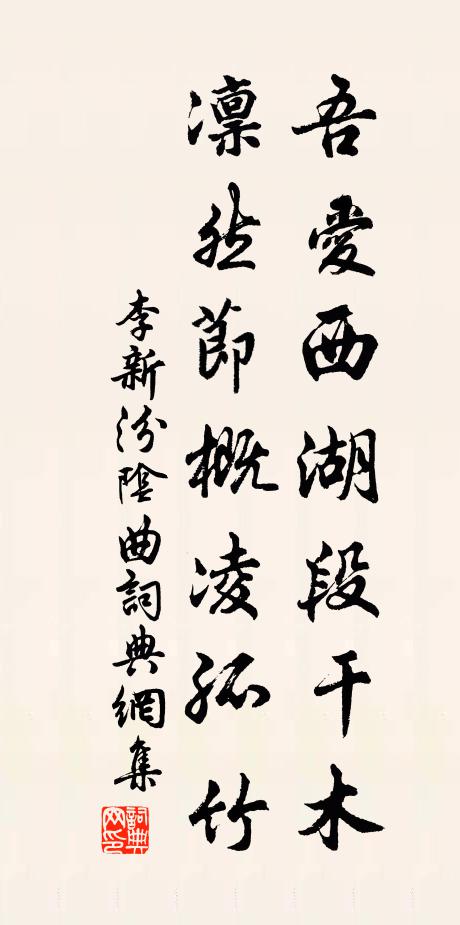 吾愛西湖段干木
凜然節概凌孤竹
李新汾陰曲詞典網集
詞典網印